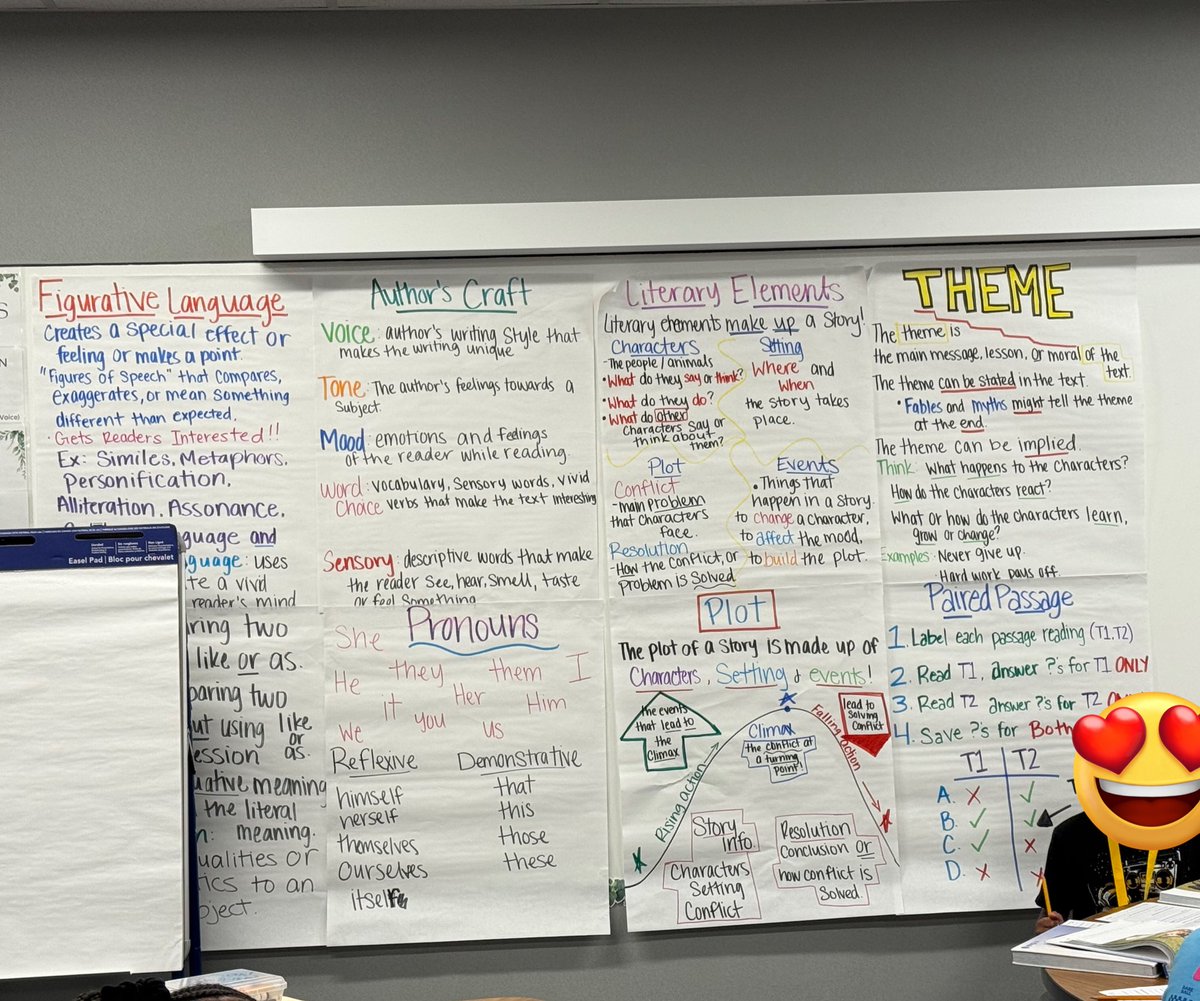 Figurative Language
Creates a special effect or
feeling or makes a point.
"Figures of Speech" that compares,
exaggerates, or mean something
different than expected.
· Gets Readers Interested!!
Ex: Similes, Metaphors,
Personification,
Alliteration, Assonance,
and
uses
a vivid
reader's mind
two
like or as.
two
using like
or
as.
meaning
the literal
meaning.
or
to an
Easel Pad | Bloc pour chevalet
Author's Craft
Voice: author's writing style that
makes the writing unique
Tone: The author's feelings towards a
subject.
Mood: emotions and feelings
of the reader while reading.
Word: vocabulary, sensory words, vivid
Choice verbs that make the text interesting
Sensory: descriptive words that make
the reader see, hear, smell, taste
or feel something
Pronouns
She
they them I
He
it Her Him
you
We us
Reflexive
himself
herself
themselves
Ourselves
itself
Demonstrative
that
this
those
these
Literary Elements
Literary elements make up a story!
Characters
-The people/animals
• What do they say or think?
• What do they do?
• What do other
characters say or
think about
them?
Setting
Where and
When
the story takes
place.
Plot
Conflict
-main problem
that characters
face.
Resolution
-How the conflict, or
problem is solved
Events
• Things that
happen in a story.
to change a character,
to affect the mood,
to build the plot.
Plot
The plot of a story is made up of
Characters, Setting & events!
the events
that lead to
the
Climax
Rising action
Climax
the conflict at
a turning
point!
Falling action
lead to
solving
conflict
Story
Info.
Characters
Setting
Conflict
Resolution
Conclusion or
how conflict is
solved.
THEME
The theme is
the main message, lesson, or moral of the
text.
The theme can be stated in the text.
• Fables and myths might tell the theme
at the end
The theme can be implied.
Think: What happens to the characters?
How do the characters react?
What or how do the characters learn,
grow or change?
Examples · Never give up.
· Hard work pays off.
Paired Passage
1. Label each passage reading (T1.T2)
2. Read T1, answer ?'s for T1 ONLY
3. Read T2 answer ?'s for T2
4. Save ?'s for Both
T1 T2
A. X ✓
B. ✓ ✓
C. ✓ X
D. X X